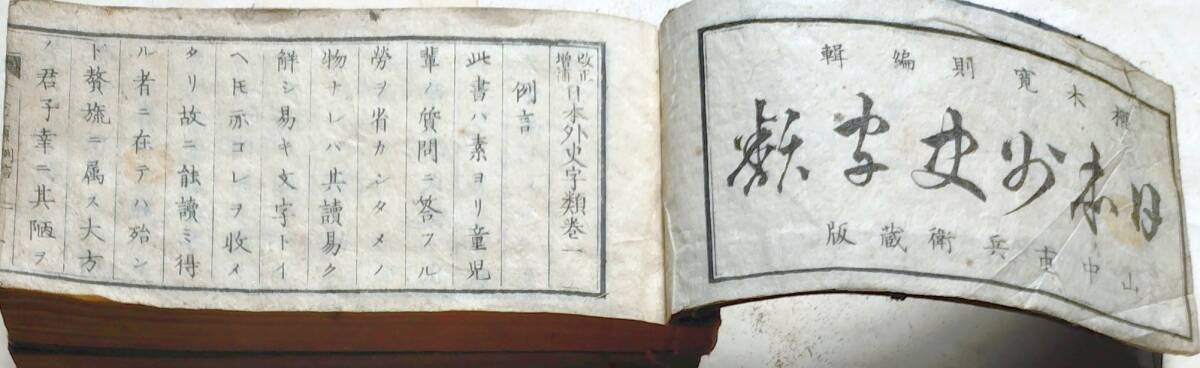 木寛則編輯
日本外史字類
山中市兵衛蔵版
改正増補日本外史字類巻一
例言
此書ハ素ヨリ童児
輩ノ質問ニ答フル
勞ヲ省カンタメノ
物ナレハ其讀易ク
解シ易キ文字トイ
ヘ𪜈亦コレヲ收メ
タリ故ニ能讀ミ得
ル者ニ在テハ殆ン
ド贅旒ニ属ス大方
ノ君子幸ニ其陋ヲ